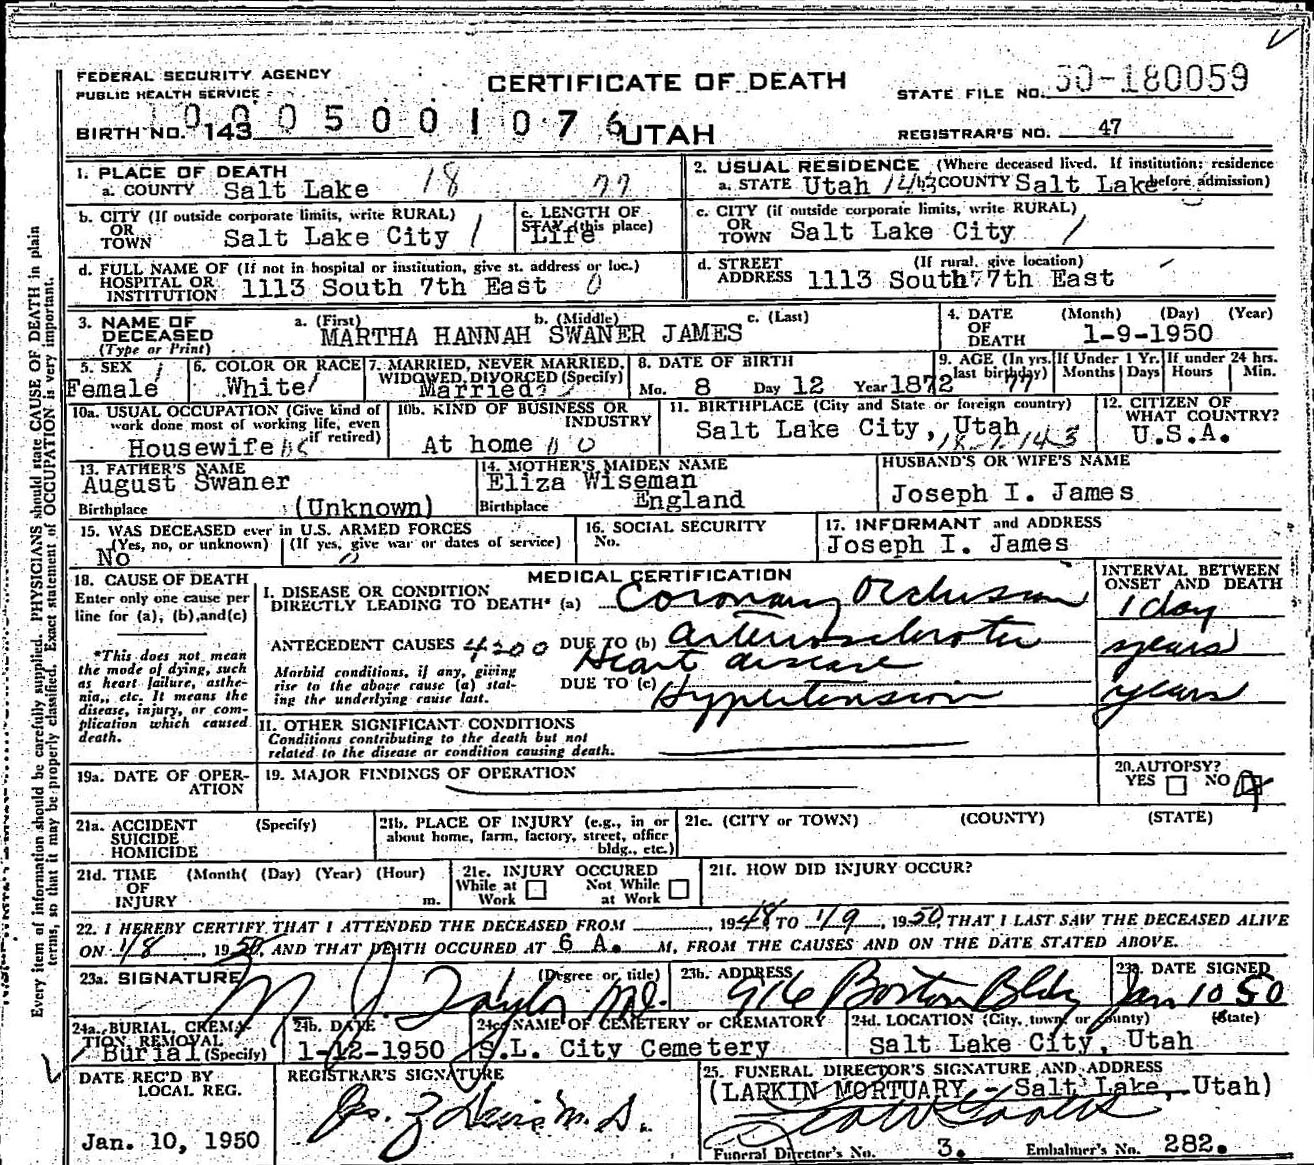 FEDERAL SECURITY AGENCY
PUBLIC HEALTH SERVICE
CERTIFICATE OF DEATH
STATE FILE NO. 50-180059
BIRTH NO. 143
0005001076
UTAH
REGISTRAR'S NO. 47
1. PLACE OF DEATH
a. COUNTY Salt Lake 18 77
2. USUAL RESIDENCE (Where deceased lived. If institution: residence before admission)
a. STATE Utah 143 b. COUNTY Salt Lake
b. CITY (If outside corporate limits, write RURAL)
OR
TOWN Salt Lake City 1
c. LENGTH OF
STAY (this place)
Life
c. CITY (if outside corporate limits, write RURAL)
OR
TOWN Salt Lake City 1
d. FULL NAME OF (If not in hospital or institution, give st. address or loc.)
HOSPITAL OR
INSTITUTION 1113 South 7th East 0
d. STREET (If rural, give location)
ADDRESS 1113 South 7th East
3. NAME OF
DECEASED
(Type or Print)
a. (First) b. (Middle) c. (Last)
MARTHA HANNAH SWANER JAMES
4. DATE
OF
DEATH
(Month) (Day) (Year)
1-9-1950
5. SEX 1
Female
6. COLOR OR RACE
White
7. MARRIED, NEVER MARRIED,
WIDOWED, DIVORCED (Specify)
Married
8. DATE OF BIRTH
Mo. 8 Day 12 Year 1872
9. AGE (In yrs. last birthday) 77
If Under 1 Yr.
Months Days
If under 24 hrs.
Hours Min.
10a. USUAL OCCUPATION (Give kind of
work done most of working life, even
if retired)
Housewife
10b. KIND OF BUSINESS OR
INDUSTRY
At home
11. BIRTHPLACE (City and State or foreign country)
Salt Lake City, Utah
18-1-143
12. CITIZEN OF
WHAT COUNTRY?
U.S.A.
13. FATHER'S NAME
August Swaner
Birthplace (Unknown)
14. MOTHER'S MAIDEN NAME
Eliza Wiseman
Birthplace England
HUSBAND'S OR WIFE'S NAME
Joseph I. James
15. WAS DECEASED ever in U.S. ARMED FORCES
(Yes, no, or unknown) (If yes, give war or dates of service)
No
16. SOCIAL SECURITY
No.
17. INFORMANT and ADDRESS
Joseph I. James
18. CAUSE OF DEATH
Enter only one cause per
line for (a), (b), and (c)
*This does not mean
the mode of dying, such
as heart failure, asthe-
nia, etc. It means the
disease, injury, or com-
plication which caused
death.
MEDICAL CERTIFICATION
I. DISEASE OR CONDITION
DIRECTLY LEADING TO DEATH* (a) Coronary Occlusion
ANTECEDENT CAUSES 4200 DUE TO (b) arteriosclerotic
Heart disease
Morbid conditions, if any, giving
rise to the above cause (a) stat-
ing the underlying cause last.
DUE TO (c) Hypertension
INTERVAL BETWEEN
ONSET AND DEATH
1 day
years
years
II. OTHER SIGNIFICANT CONDITIONS
Conditions contributing to the death but not
related to the disease or condition causing death.
19a. DATE OF OPER-
ATION
19. MAJOR FINDINGS OF OPERATION
20. AUTOPSY?
YES NO
21a. ACCIDENT (Specify)
SUICIDE
HOMICIDE
21b. PLACE OF INJURY (e.g., in or
about home, farm, factory, street, office
bldg., etc.)
21c. (CITY or TOWN) (COUNTY) (STATE)
21d. TIME (Month( (Day) (Year) (Hour)
OF
INJURY m.
21e. INJURY OCCURED
While at Work Not While at Work
21f. HOW DID INJURY OCCUR?
22. I HEREBY CERTIFY THAT I ATTENDED THE DECEASED FROM , 1948 TO 1/9, 1950, THAT I LAST SAW THE DECEASED ALIVE
ON 1/8, 1950, AND THAT DEATH OCCURED AT 6 A. M, FROM THE CAUSES AND ON THE DATE STATED ABOVE.
23a. SIGNATURE (Degree or title)
M J Taylor MD.
23b. ADDRESS
916 Boston Bldg
23c. DATE SIGNED
Jan 10 50
24a. BURIAL, CREMA-
TION REMOVAL
Burial (Specify)
24b. DATE
1-12-1950
24c. NAME OF CEMETERY or CREMATORY
S.L. City Cemetery
24d. LOCATION (City, town, or county) (State)
Salt Lake City, Utah
DATE REC'D BY
LOCAL REG.
Jan. 10, 1950
REGISTRAR'S SIGNATURE
25. FUNERAL DIRECTOR'S SIGNATURE AND ADDRESS
(LARKIN MORTUARY - Salt Lake, Utah)
Funeral Director's No. 3. Embalmer's No. 282.
Every item of information should be carefully supplied. PHYSICIANS should state CAUSE OF DEATH in plain
terms, so that it may be properly classified. Exact statement of OCCUPATION is very important.